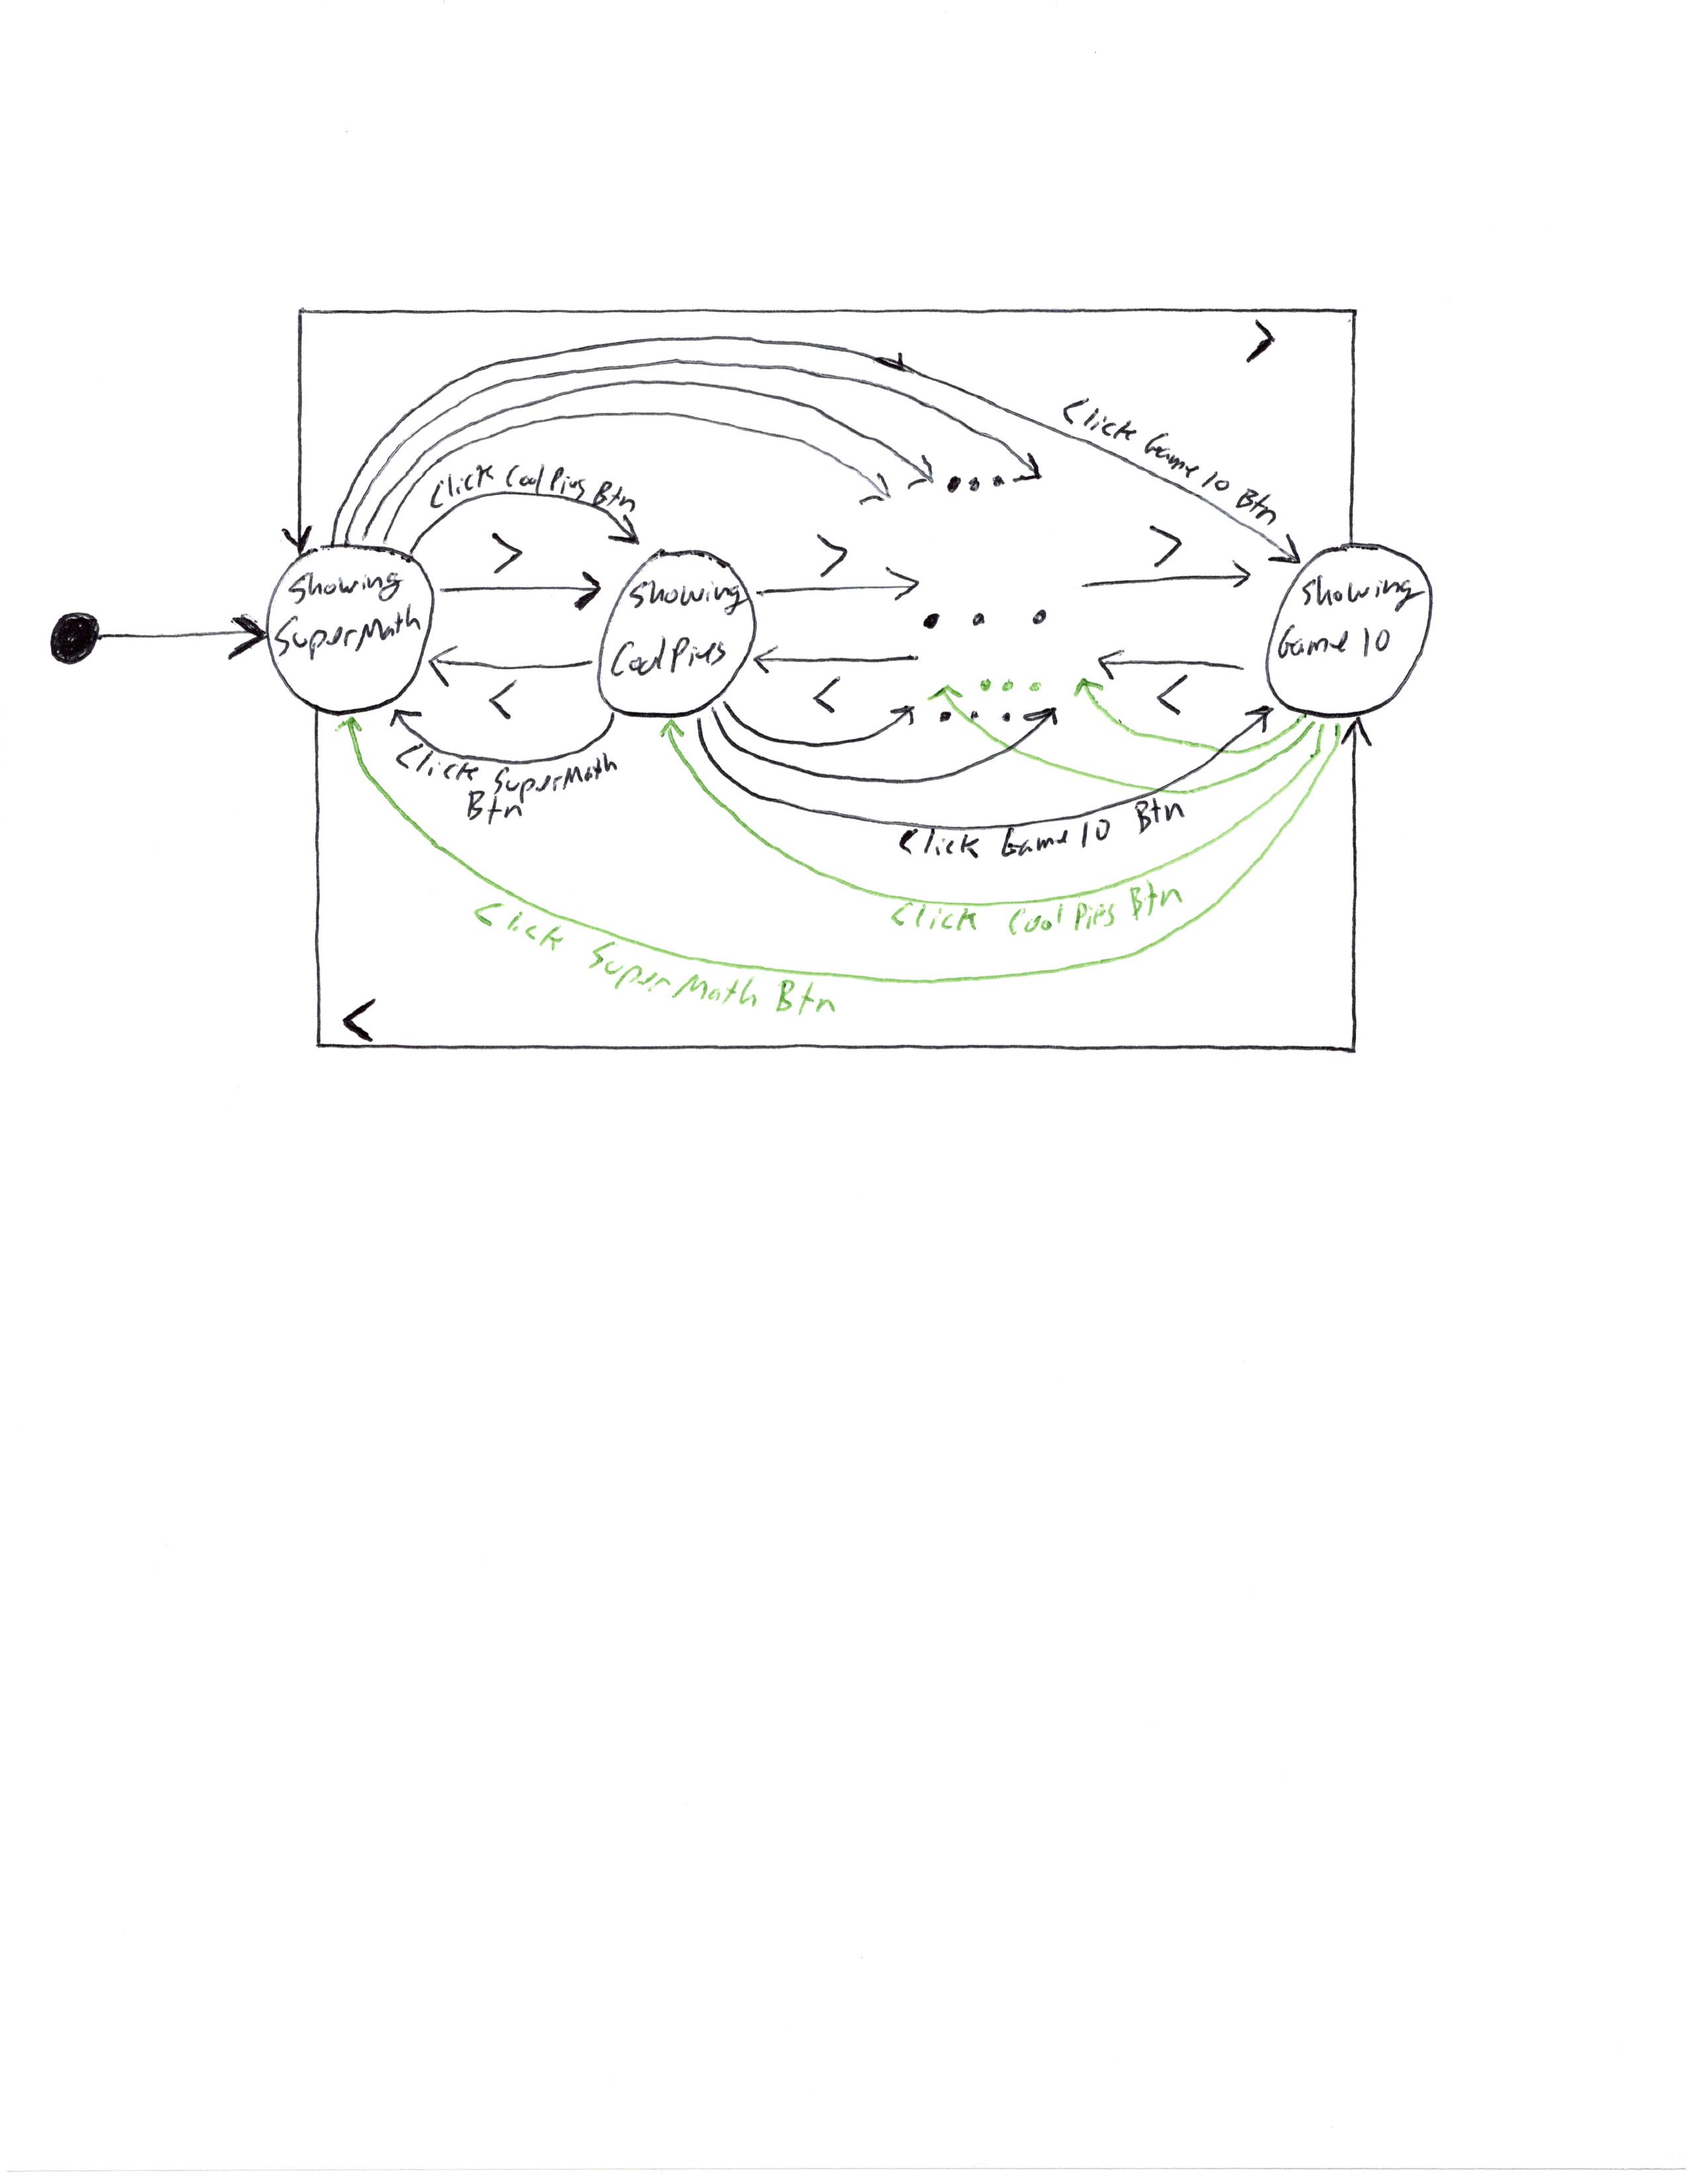 >
Click Game 10 Btn
Click CoolPies Btn
>
>
>
Showing
SuperMath
Showing
CoolPies
Showing
Game 10
<
<
<
Click SuperMath
Btn
Click Game 10 Btn
Click CoolPies Btn
Click SuperMath Btn
<